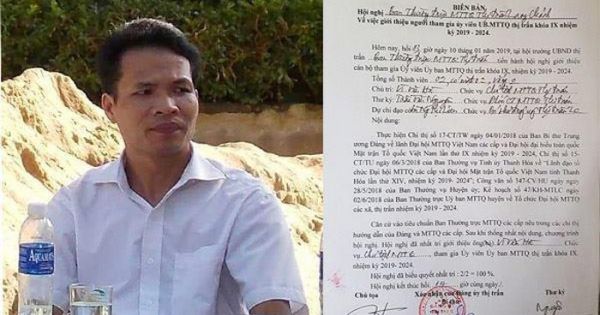 AQUAFINA
BIÊN BẢN
Hội nghị Ban Thường trực MTTQ Thị trấn Lang Chánh
Về việc giới thiệu người tham gia ủy viên UB.MTTQ thị trấn khóa IX nhiệm
kỳ 2019 - 2024.
Hôm nay, hồi giờ ngày 10 tháng 01 năm 2019, tại hội trường UBND thị
trấn Ban Thường trực MTTQ Thị trấn tiến hành hội nghị giới thiệu
cán bộ tham gia Ủy viên Ủy ban MTTQ thị trấn khóa IX, nhiệm kỳ 2019 - 2024.
Tổng số Thành viên 02
Chủ trì: Vi Văn Chức vụ: Chủ tịch MTTQ Thị trấn
Thư ký: Chức vụ: MTTQ Thị trấn
Đại diện chỉ đạo
Thực hiện Chỉ thị số 17-CT/TW ngày 04/01/2018 của Ban Bí thư Trung
ương Đảng về lãnh đạo Đại hội MTTQ Việt Nam các cấp và Đại hội đại biểu toàn quốc
Mặt trận Tổ quốc Việt Nam lần thứ IX nhiệm kỳ 2019 - 2024; Chỉ thị số 15-
CT/TU ngày 05/3/2018 của Ban Thường vụ Tỉnh ủy Thanh Hóa về "Lãnh đạo tổ
chức Đại hội MTTQ các cấp và Đại hội Mặt trận Tổ quốc tỉnh Thanh
Hóa lần thứ XIV, nhiệm kỳ 2019- 2024"; Công văn số 347-CV/HU ngày
28/5/2018 của Ban Thường vụ Huyện ủy; Kế hoạch số 47/KH-MTLC ngày
02/6/2018 của Ban Thường trực Uỷ ban MTTQ huyện về Tổ chức Đại hội MTTQ các
xã, thị trấn nhiệm kỳ 2019 - 2024.
Căn cứ vào tiêu chuẩn Ban Thường trực MTTQ các cấp nêu trong các chỉ thị
hướng dẫn của Đảng và MTTQ các cấp. Sau khi thống nhất nội dung, chương trình
hội nghị. Hội nghị đã nhất trí giới thiệu ông Vi Văn Chức
vụ: Chủ tịch MTTQ, tham gia Ủy viên Ủy ban MTTQ thị trấn khóa IX
nhiệm kỳ 2019 - 2024.
Hội nghị đã biểu quyết nhất trí : 2/2 = 100 %.
Hội nghị kết thúc hồi giờ cùng ngày./.
Chủ tọa Xác nhận của đảng ủy thị trấn Thư ký